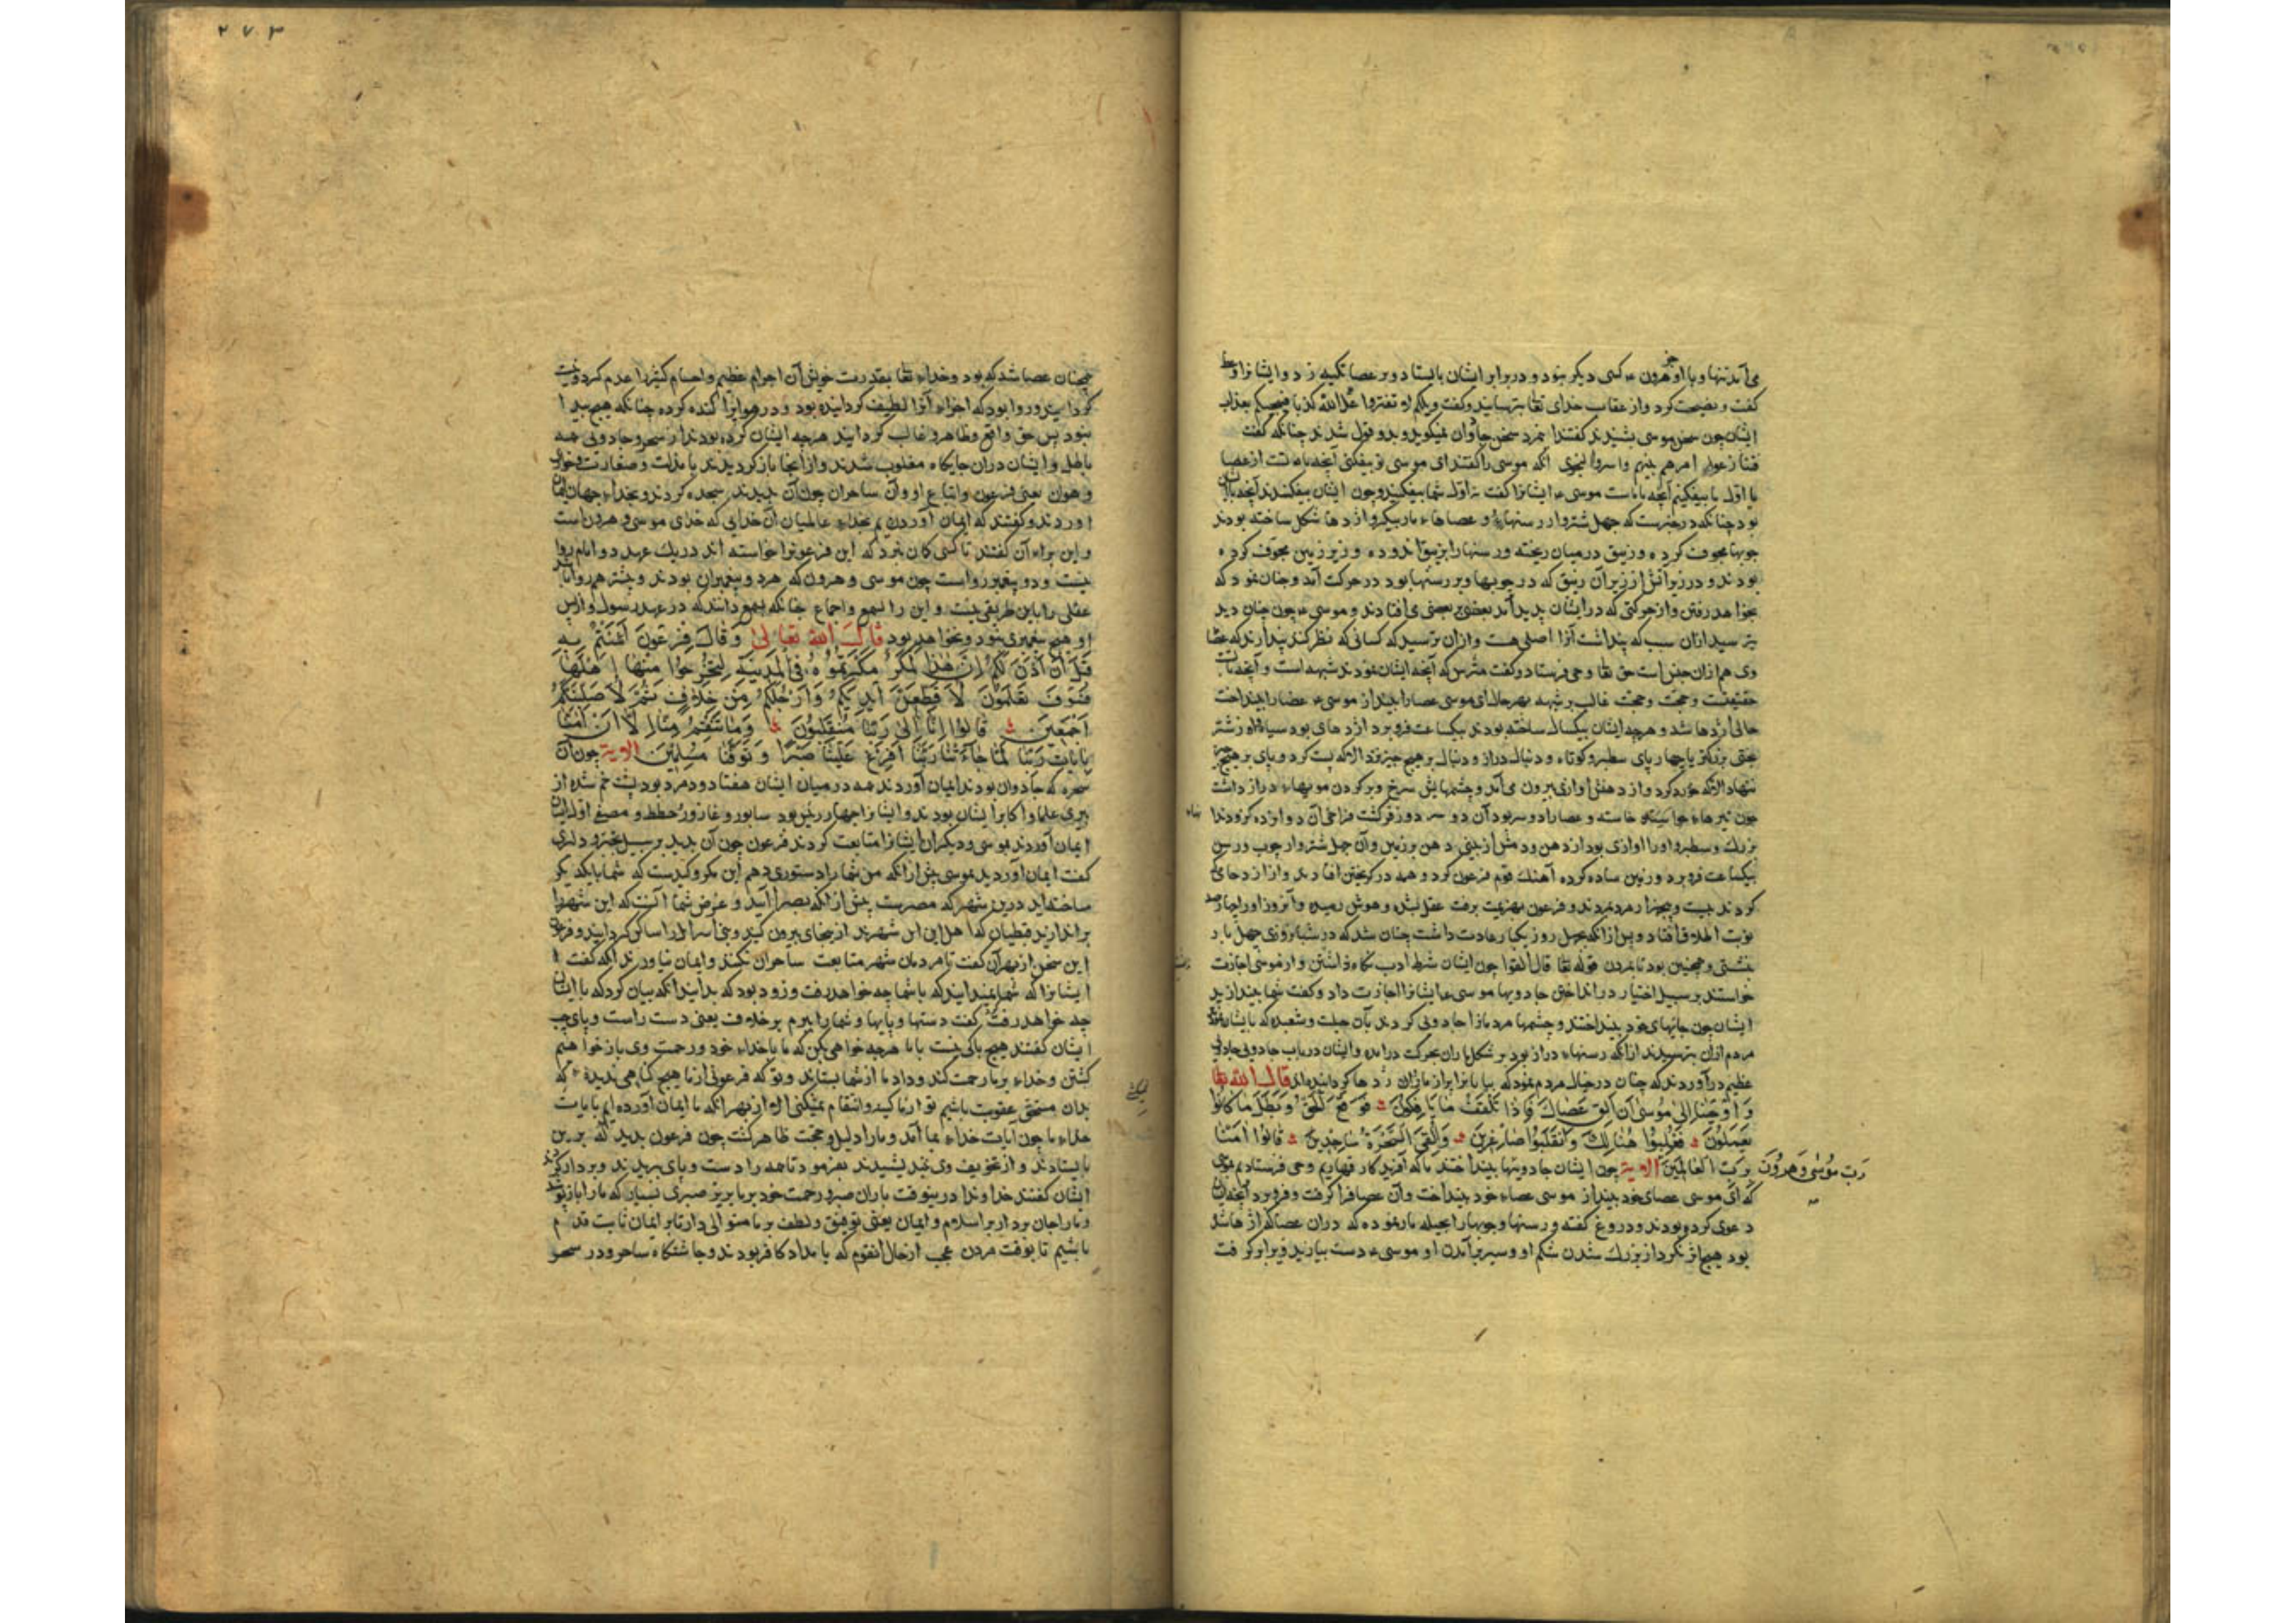 می آمد تنها و با او جز هرون ء کسی دیکر نبود و در برابر ایشان بایستاد و بر عصا تکیه زد و ایشانرا وعظ
کفت و نصیحت کرد و از عقاب خدای تعا بترسانید و کفت ویلکم لا تفتروا علی الله کذبا فیسحتکم بعذاب
ایشان چون سخن موسی بشنیدند کفتند این مرد سخن جادوان نمیکوید و بدو قول شدند چنانکه کفت
فتنازعوا امرهم بینهم واسروا النجوی انکه موسی را کفتند ای موسی تو بیفکنی آنچه با تست از عصا
یا اول ما بیفکنیم آنچه با ماست موسی ء ایشانرا کفت نه اول شما بیفکنید و چون ایشان بیفکندند آنچه با ایشان
بود چنانکه در خبرست که چهل شتروار رسنها و عصاها باریک و اژدها شکل ساخته بودند
چوبها مجوف کرده و زیبق در میان ریخته و رسنها را بزیبق اندوده و زیر زمین مجوف کرده
بودند و در زیر آتش از زیر آن زیبق که در چوبها و بر رسنها بود در حرکت آمد و چنان نمود که
بخواهد رفتن و از حرکتی که در ایشان پدید آمد بعضی بر بعضی می افتادند و موسی ء چون چنان دید
بترسید ازان سبب که پنداشت آنرا اصلی هست و ازان ترسید که کسانی که نظر کنند پندارند که عصا
وی هم ازان جنس است حق تعا وحی فرستاد و کفت مترس که آنچه ایشان نمودند شبهه است و آنچه با تست
حقیقت و حجت و حجت غالب بر شبهه بهر حال ای موسی عصا را بینداز موسی ء عصا را بینداخت
حالی اژدها شد و هرچه ایشان بیکسال ساخته بودند بیکساعت فرو برد اژدهای بود سیاه از شتر
بختی بزرکتر با چهار پای سطبر و کوتاه و دنبال دراز و دنبال بر هیچ چیز نزد الا که پست کرد و پای بر هیچ چیز
ننهاد الا که خرد کرد و از دهنش اوازی بیرون می آمد و چشمهایش سرخ و بر کردن مویهاء دراز داشت
بزرك و سطبر و اورا اوازی بود از دهن و دمش از بینی دهن بر زمین و آن چهل شتروار چوب و رسن
بیکساعت فرو برد و زمین ساده کرده آهنك قوم فرعون کرد و همه در کریختن افتادند و از ازدحامی که
کردند بیست و پنج هزار مرد بمردند و فرعون بهزیمت برفت عقل بشده و هوش رمیده و آنروز اورا چهار صد
نوبت اطلاق افتاد و پس ازانکه بچهل روز یکبار عادت داشت چنان شد که در شبانروزی چهل بار
بنشستی و همچنین بود تا بمردن قوله تعا قال القوا چون ایشان شرط ادب نکاه داشتن و از موسی اجازت
خواستند بر سبیل اختیار در انداختن جادویها موسی ء ایشانرا اجازت داد و کفت شما بیندازید
ایشان چون جانهای خود بینداختند و چشمها مردمانرا جادوئی کردند بآن حیلت و شعبده که بایشان نمودند
مردم ازان بترسیدند ازانکه رسنهاء دراز بود بر شکل ماران بحرکت درآمده و ایشان در باب جادویی جادوی
عظیم درآوردند که چنان در خیال مردم نمود که بیابانرا پر از ماران و اژدها کردانیده اند قال الله تعا
وَ اَوْحَیْنَا اِلیٰ مُوسٰی اَنْ اَلْقِ عَصَاكَ فَاِذَا تَلْقَفُ مَا یَافِکُونَ فَوَقَعَ الْحَقُّ وَ بَطَلَ مَا کَانُوا
یَعْمَلُونَ فَغُلِبُوا هُنَالِكَ وَانْقَلَبُوا صَاغِرِینَ وَاُلْقِیَ السَّحَرَةُ سَاجِدِینَ قَالُوا اٰمَنَّا
بِرَبِّ الْعَالَمِینَ رَبِّ مُوسٰی وَهٰرُونَ الایة چون ایشان جادویها بینداختند ما که آفریدکار قهاریم وحی فرستادیم بموسی
که ای موسی عصای خود بینداز موسی عصاء خود بینداخت و آن عصا فرا کرفت و فرو برد آنچه ایشان
دعوی کرده بودند و دروغ کفته و رسنها و چوبها را بحیله مار نموده که دران عصا که اژدها شد
بود هیچ اثر نکرد از بزرك شدن شکم او و سیر برآمدن او و موسی ء دست بیازید و برا برکرفت
۲۷۳
همچنان عصا شد که بود و خداء تعا بقدرت خویش آن اجرام عظیم و اجسام کثیر را عدم کرد و نیست
کردانید و روا بود که اجزاء آنرا لطیف کردانیده بود و در هوا پراکنده کرده چنانکه هیچ پیدا
نبود پس حق واقع و ظاهر و غالب کردانید هرچه ایشان کرده بودند از سحر و جادوئی همه
باطل و ایشان دران جایکاه مغلوب شدند و ازانجا بازکردیدند با مذلت و صغارت و خواری
و هوان یعنی فرعون و اتباع او و آن ساحران چون آن بدیدند سجده کردند و بخداء جهان ایمان
اوردند و کفتند که ایمان آوردیم بخداء عالمیان آن خدایی که خدای موسی و هرون است
و این براء آن کفتند تا کسی کمان نبرد که این فرعونرا خواسته اند در یك عهد دو امام روا
نیست و دو پیغمبر رواست چون موسی و هرون که هر دو پیغمبران بودند و بیشتر هم روا باشد
عقلی را باین طریقی نیست و این را بسمع و اجماع چنانکه بسمع دانند که در عهد رسول و از پس
او هیچ پیغمبری نبود و نخواهد بود قَالَ اللهُ تَعَالیٰ وَ قَالَ فِرْعَوْنَ اٰمَنْتُمْ بِهِ
قَبْلَ اَنْ اٰذَنَ لَکُمْ اِنَّ هٰذَا لَمَکْرٌ مَکَرْتُمُوهُ فِی الْمَدِینَةِ لِتُخْرِجُوا مِنْهَا اَهْلَهَا
فَسَوْفَ تَعْلَمُونَ لَاُقَطِّعَنَّ اَیْدِیَکُمْ وَاَرْجُلَکُمْ مِنْ خِلَافٍ ثُمَّ لَاُصَلِّبَنَّکُمْ
اَجْمَعِینَ قَالُوا اِنَّا اِلیٰ رَبِّنَا مُنْقَلِبُونَ وَمَا تَنْقِمُ مِنَّا اِلَّا اَنْ اٰمَنَّا
بِاٰیَاتِ رَبِّنَا لَمَّا جَاءَتْنَا رَبَّنَا اَفْرِغْ عَلَیْنَا صَبْرًا وَ تَوَفَّنَا مُسْلِمِینَ الایة چون آن
سحره که جادوان بودند ایمان آوردند همه در میان ایشان هفتاد و دو مرد بود پشت خم شده از
پیری علما و اکابر ایشان بودند و ایشانرا چهار رئیس بود سابور و غازور و حطط و مصفی اول ایشان
ایمان آوردند بموسی و دیکران ایشانرا متابعت کردند فرعون چون آن بدید بر سبیل تجبر و دلیری
کفت ایمان آوردید بموسی پیش ازانکه من شما را دستوری دهم این مکر و کیدست که شما با یکدیکر
ساخته اید درین شهر که مصرست پیش ازانکه بصحرا آیید و غرض شما آنست که این شهر را
براندازید قبطیان که اهل این شهرند از اینجای بیرون کنید و بنی اسرائیل را ساکن کردانید و فرعون
این سخن از بهر آن کفت تا مردمان شهر متابعت ساحران نکنند و ایمان نیاورند انکه کفت
ایشانرا که شما نمیدانید که با شما چه خواهد رفت و زود بود که بدانید انکه بیان کرد که با ایشان
چه خواهد رفت کفت دستها و پایها و شما را ببرم بر خلاف یعنی دست راست و پای چپ
ایشان کفتند هیچ باکی نیست با ما هرچه خواهی بکن که ما با خداء خود و رحمت وی باز خواهیم
کشتن و خداء بر ما رحمت کند و داد ما از شما بستاند و تو که فرعونی از ما هیچ کناهی ندیدهٔ که
بدان مستحق عقوبت باشیم تو از ما کینه و انتقام نمیکنی الا از بهر انکه ما ایمان آورده ایم بایات
خداء ما چون آیات خداء بما آمد و ما را دلیل و حجت ظاهر کشت چون فرعون بدید که برین
بایستادند و از تخویف وی نیندیشیدند بفرمود تا همه را دست و پای ببریدند و بر دار کردند
ایشان کفتند خداوندا درینوقت باران صبر و رحمت خود بر ما بریز صبری بسیار که ما را باز
و ما را جان بردار بر اسلام و ایمان یعنی توفیق و لطف بر ما متوالی دار تا بر ایمان ثابت قدم
باشیم تا بوقت مردن عجب از حال انقوم که بامداد کافر بودند و چاشتکاه ساحر و در سحر